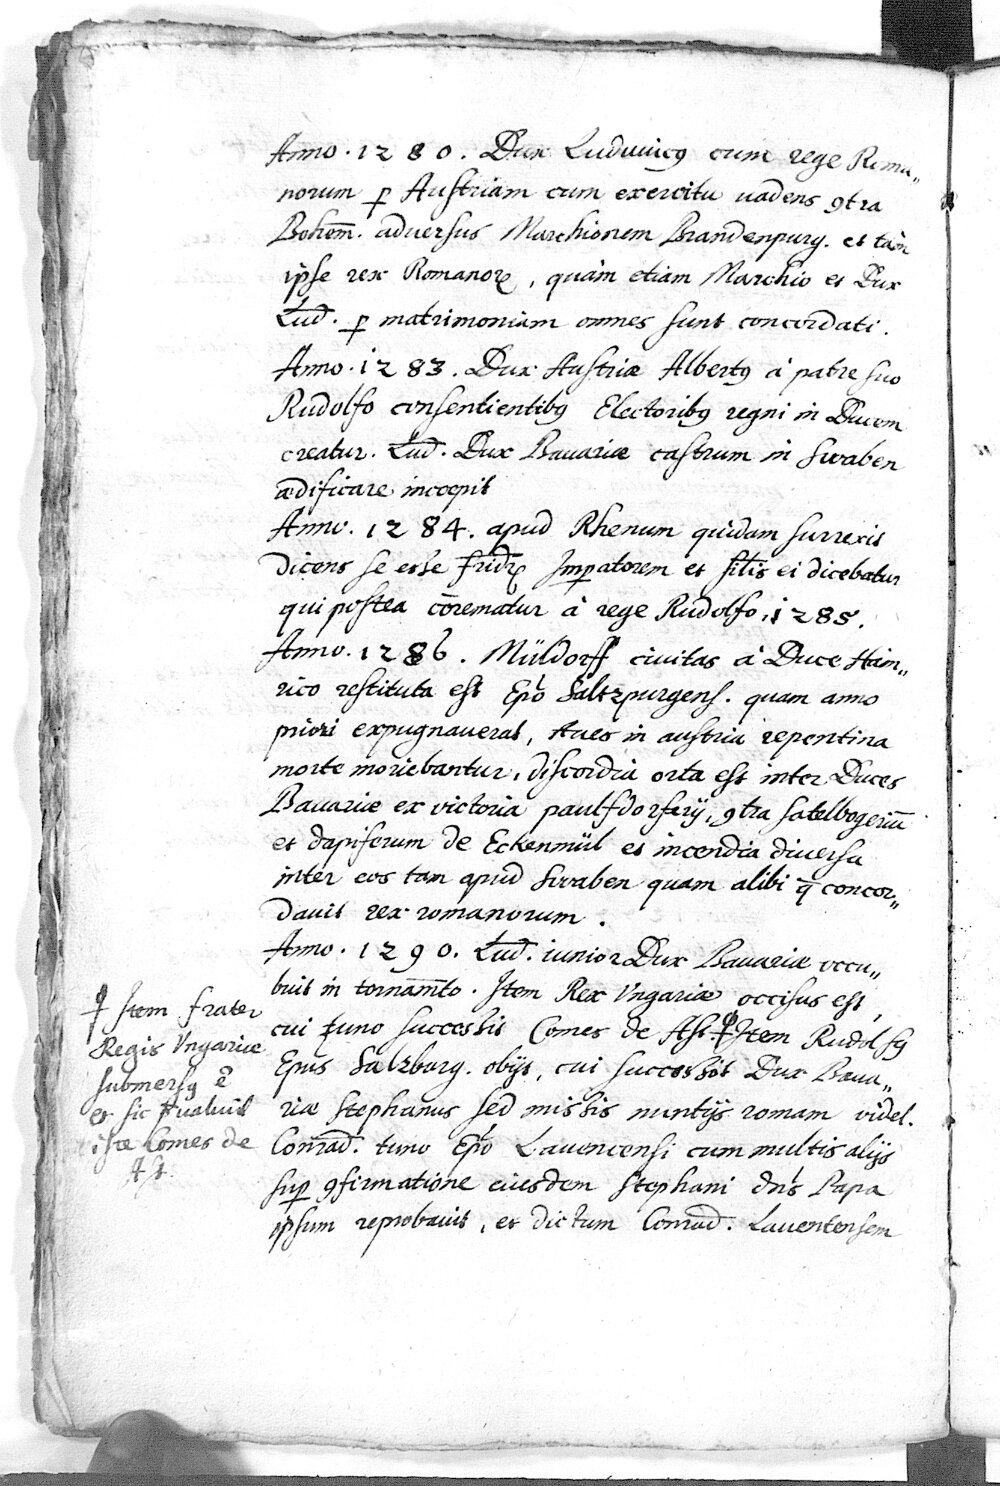 Anno. 1280. Dux Ludwicꝯ cum rege Roma„
norum ꝑ Austriam cum exercitu vadens ꝯtra
Bohem̄. adversus Marchionem Brandenpurg. et tàm
ipse rex Romanoꝝ, quàm etiam Marchio et Dux
Lud̄. ꝑ matrimonium omnes sunt concordati.
Anno. 1283. Dux Austriæ Albertꝯ à patre suo
Rudolfo consentientibꝯ Electoribꝯ regni in Ducem
creatur. Lud̄. Dux Bauariæ castrum in Swaben
ædificare incoepit
Anno. 1284. apud Rhenum quidam surrexit
dicens se esse Fridꝝ Imꝑatorem et filis ei dicebatur
qui postea cōrematur à rege Rudolfo, 1285.
Anno. 1286. Müldorff ciuitas à Duce Hain„
rico restituta est Ep̄o Saltzpurgens. quam anno
priori expugnauerat, Aues in austria repentina
morte moriebantur, discordia orta est inter Duces
Bauariæ ex victoria paulsdorfarij, ꝯtra satelbogeriū
et dapiferum de Eckenmül et incendia diuersa
inter eos tam apud Swaben quam alibi q̄ concor„
dauit rex romanorum.
Anno. 1290. Lud̄. iunior Dux Bauariæ occu„
buit in tornam̄to. Item Rex Vngariæ occisus est,
cui tunc successit Comes de Ast. Item Rudolfꝯ
Epus Salzburg. obijt, cui successit Dux Baua„
riæ Stephanus sed missis nuntijs romam videl.
Conrad̄. tunc Ep̄o Lauencensi cum multis alijs
suꝑ ꝯfirmatione eiusdem Stephani dn̄s Papa
ipsum reprobauit, et dictum Conrad̄. Lauentensem
Item frater
Regis Vngariæ
submersꝯ ē
et sic p̄ualuit
iste Comes de
Ast.